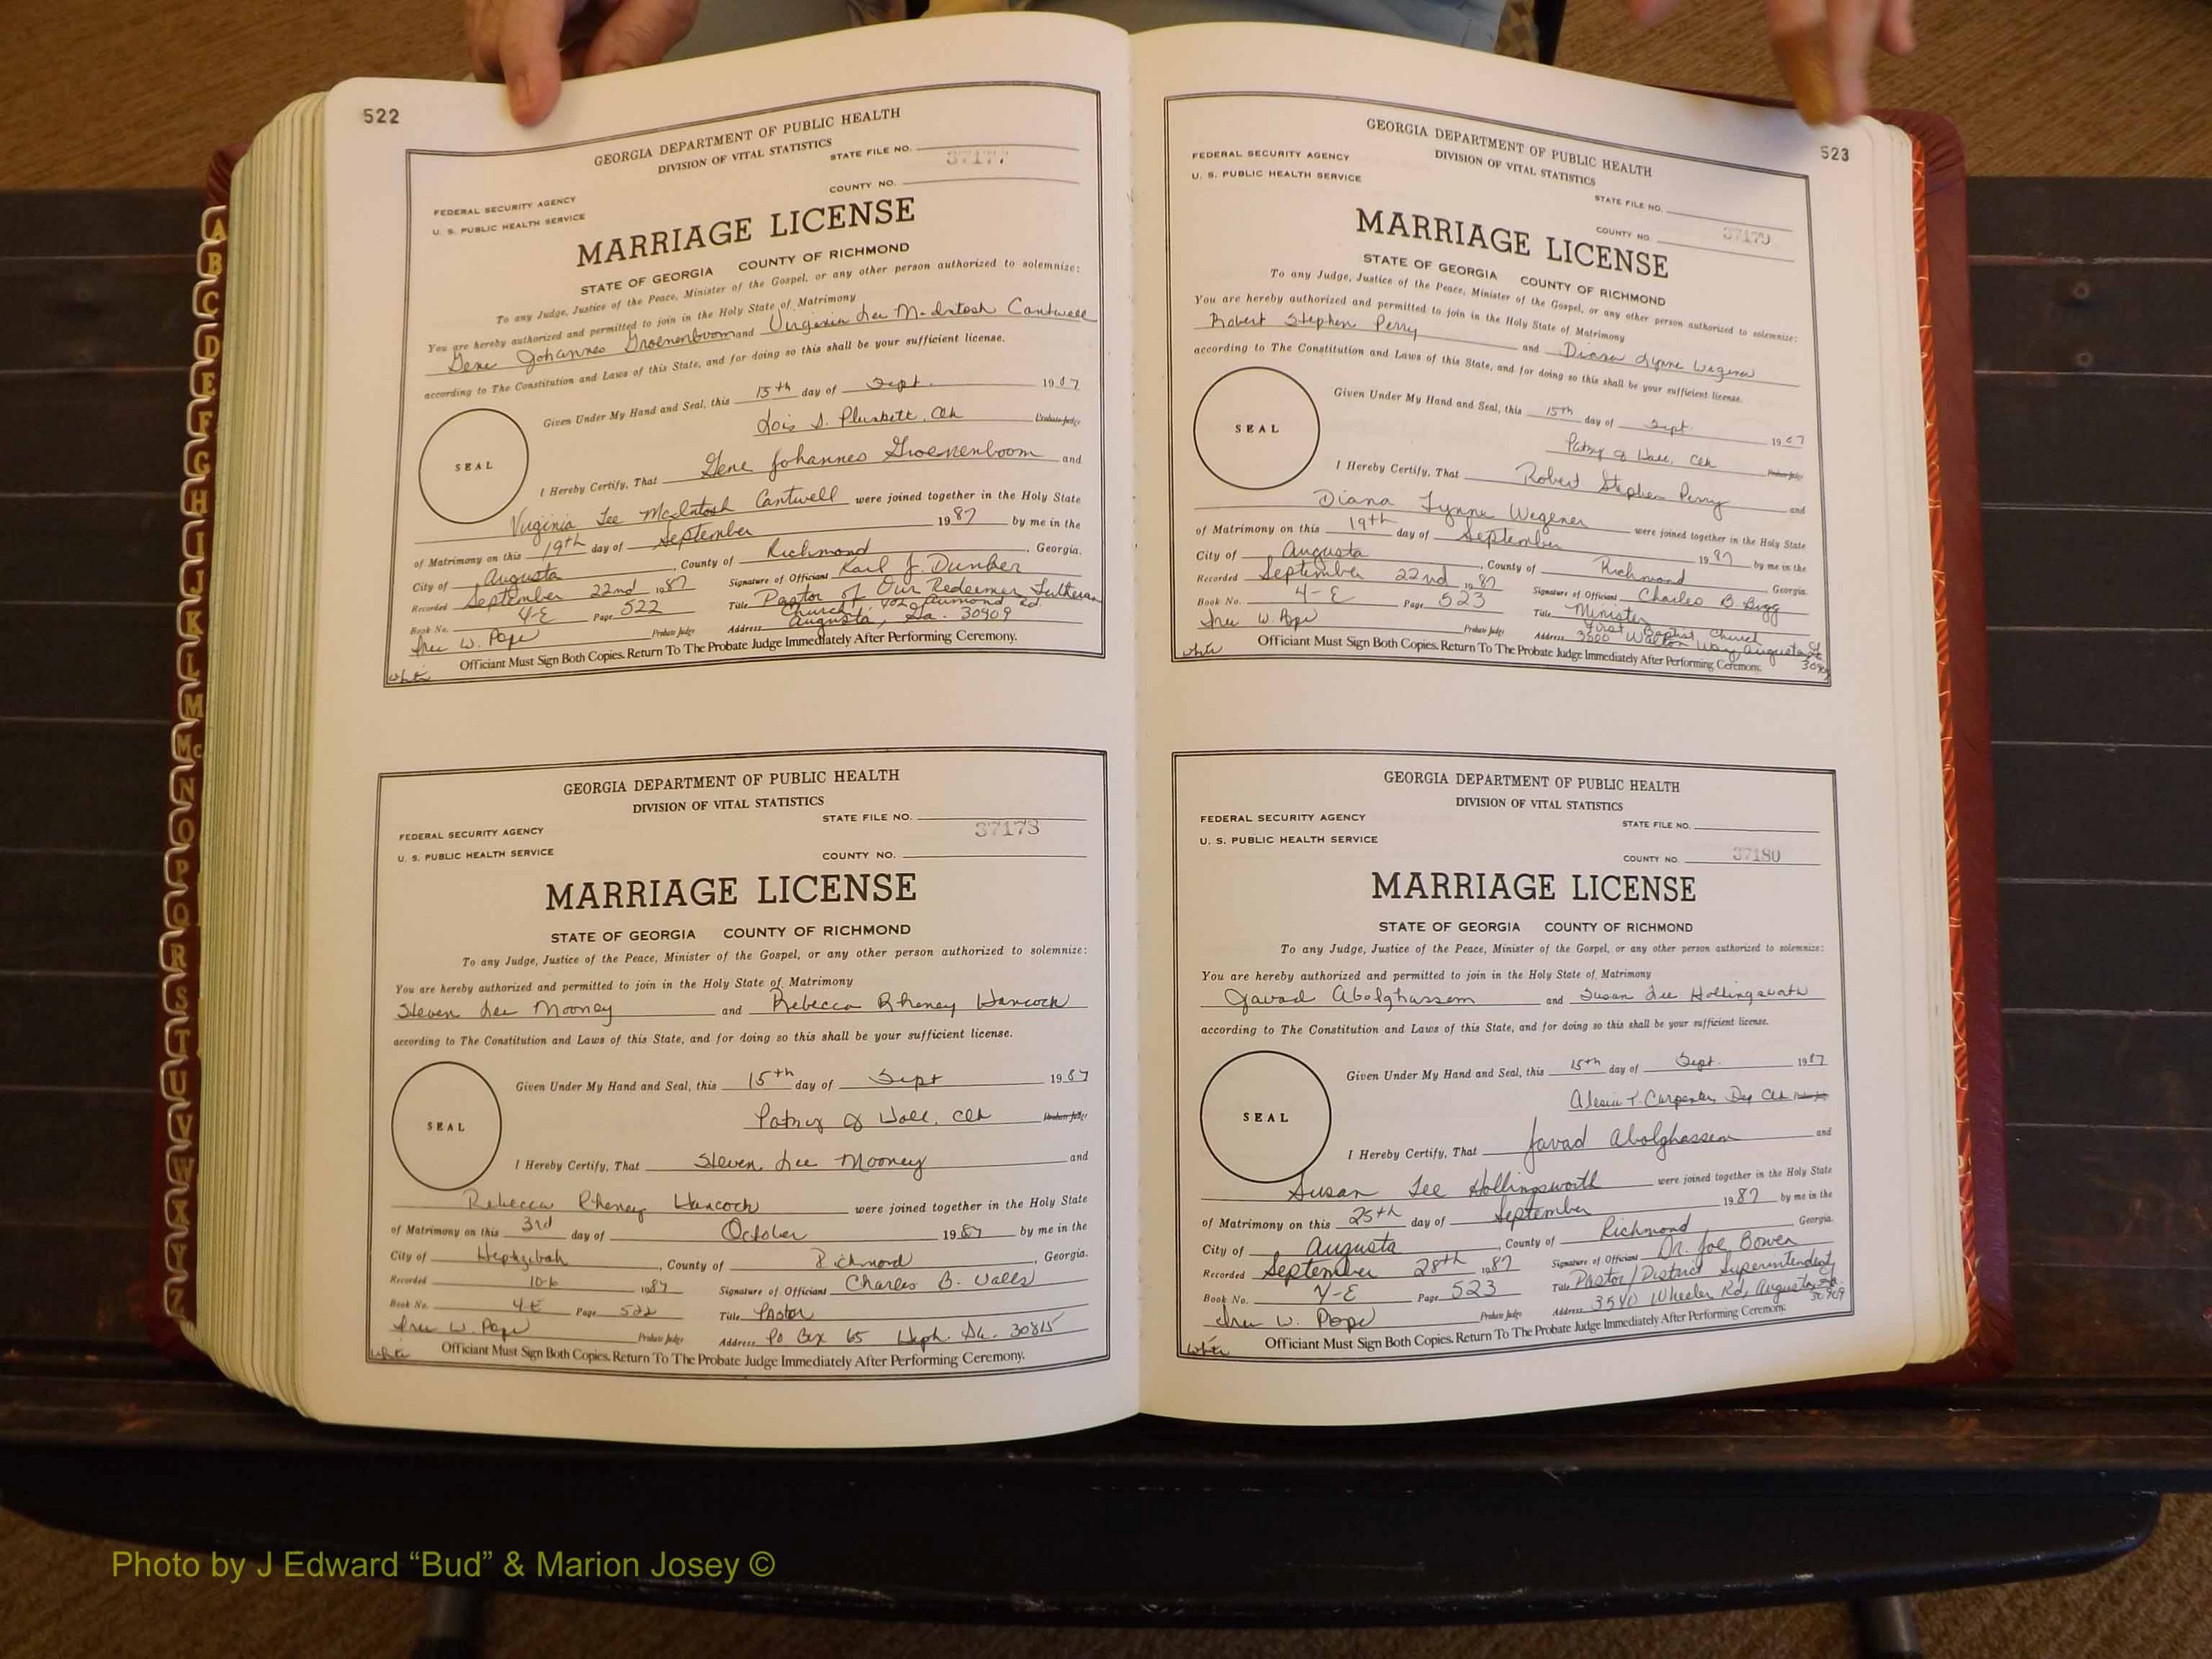 522
GEORGIA DEPARTMENT OF PUBLIC HEALTH
DIVISION OF VITAL STATISTICS
STATE FILE NO. 37177
COUNTY NO.
FEDERAL SECURITY AGENCY
U. S. PUBLIC HEALTH SERVICE
MARRIAGE LICENSE
STATE OF GEORGIA COUNTY OF RICHMOND
To any Judge, Justice of the Peace, Minister of the Gospel, or any other person authorized to solemnize:
You are hereby authorized and permitted to join in the Holy State of Matrimony
Gene Johannes Groenenboom and Virginia Lee McIntosh Cantwell
according to The Constitution and Laws of this State, and for doing so this shall be your sufficient license.
Given Under My Hand and Seal, this 15th day of Sept. 1987
Lois S. Plunkett, Clk Probate Judge
SEAL
I Hereby Certify, That Gene Johannes Groenenboom and
Virginia Lee McIntosh Cantwell were joined together in the Holy State
of Matrimony on this 19th day of September 1987 by me in the
City of Augusta, County of Richmond, Georgia.
Recorded September 22nd 1987 Signature of Officiant Karl J. Dunker
Book No. 4-E Page 522 Title Pastor of Our Redeemer Lutheran
Church, 402 Aumond Rd.
W. Pope Probate Judge Address Augusta, Ga. 30909
Officiant Must Sign Both Copies. Return To The Probate Judge Immediately After Performing Ceremony.
white
GEORGIA DEPARTMENT OF PUBLIC HEALTH
DIVISION OF VITAL STATISTICS
STATE FILE NO. 37178
FEDERAL SECURITY AGENCY
U. S. PUBLIC HEALTH SERVICE
COUNTY NO.
MARRIAGE LICENSE
STATE OF GEORGIA COUNTY OF RICHMOND
To any Judge, Justice of the Peace, Minister of the Gospel, or any other person authorized to solemnize:
You are hereby authorized and permitted to join in the Holy State of Matrimony
Steven Lee Mooney and Rebecca Rheney Hancock
according to The Constitution and Laws of this State, and for doing so this shall be your sufficient license.
Given Under My Hand and Seal, this 15th day of Sept 1987
Clk Probate Judge
SEAL
I Hereby Certify, That Steven Lee Mooney and
Rebecca Rheney Hancock were joined together in the Holy State
of Matrimony on this 3rd day of October 1987 by me in the
City of Hephzibah, County of Richmond, Georgia.
Recorded 10-6 1987 Signature of Officiant Charles B. Walls
Book No. 4-E Page 522 Title Pastor
W. Pope Probate Judge Address PO Box 65 Heph. Ga. 30815
white
Officiant Must Sign Both Copies. Return To The Probate Judge Immediately After Performing Ceremony.
523
GEORGIA DEPARTMENT OF PUBLIC HEALTH
DIVISION OF VITAL STATISTICS
FEDERAL SECURITY AGENCY
U. S. PUBLIC HEALTH SERVICE
STATE FILE NO.
COUNTY NO. 37179
MARRIAGE LICENSE
STATE OF GEORGIA COUNTY OF RICHMOND
To any Judge, Justice of the Peace, Minister of the Gospel, or any other person authorized to solemnize:
You are hereby authorized and permitted to join in the Holy State of Matrimony
Robert Stephen Perry and Diana Lynne Wegener
according to The Constitution and Laws of this State, and for doing so this shall be your sufficient license.
Given Under My Hand and Seal, this 15th day of Sept. 1987
Clk Probate Judge
SEAL
I Hereby Certify, That Robert Stephen Perry and
Diana Lynne Wegener were joined together in the Holy State
of Matrimony on this 19th day of September 1987 by me in the
City of Augusta, County of Richmond Georgia.
Recorded September 22nd 1987 Signature of Officiant Charles B. Bugg
Book No. 4-E Page 523 Title Minister
First Baptist Church
W. Pope Probate Judge Address 3500 Walton Way, Augusta Ga. 30909
white
Officiant Must Sign Both Copies. Return To The Probate Judge Immediately After Performing Ceremony.
GEORGIA DEPARTMENT OF PUBLIC HEALTH
DIVISION OF VITAL STATISTICS
FEDERAL SECURITY AGENCY
U. S. PUBLIC HEALTH SERVICE
STATE FILE NO.
COUNTY NO. 37180
MARRIAGE LICENSE
STATE OF GEORGIA COUNTY OF RICHMOND
To any Judge, Justice of the Peace, Minister of the Gospel, or any other person authorized to solemnize:
You are hereby authorized and permitted to join in the Holy State of Matrimony
Javad Abolghassem and Susan Lee Hollingsworth
according to The Constitution and Laws of this State, and for doing so this shall be your sufficient license.
Given Under My Hand and Seal, this 15th day of Sept. 1987
Alesia T. Carpenter, Dep Clk Probate Judge
SEAL
I Hereby Certify, That Javad Abolghassem and
Susan Lee Hollingsworth were joined together in the Holy State
of Matrimony on this 25th day of September 1987 by me in the
City of Augusta, County of Richmond, Georgia.
Recorded September 28th 1987 Signature of Officiant Dr. Joe Bowen
Book No. 4-E Page 523 Title Pastor/District Superintendent
W. Pope Probate Judge Address 3540 Wheeler Rd, Augusta, Ga. 30909
white
Officiant Must Sign Both Copies. Return To The Probate Judge Immediately After Performing Ceremony.
A
B
C
D
E
F
G
H
I
J
K
L
M
Mc
N
O
P
Q
R
S
T
U
V
W
X
Y
Z
Photo by J Edward “Bud” & Marion Josey ©